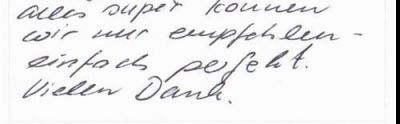 alles super können
wir nur empfehlen -
einfach perfekt.
Vielen Dank.